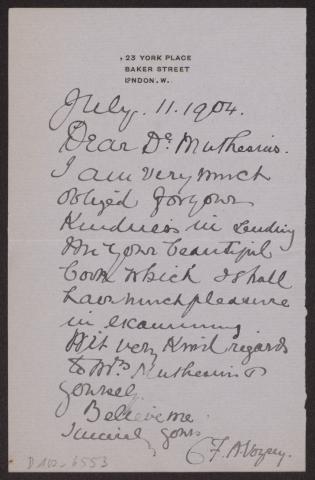 23 YORK PLACE
BAKER STREET
LONDON. W.
July. 11. 1904.
Dear Dr. Muthesius.
I am very much
obliged for your
kindness in sending
me your beautiful
book which I shall
have much pleasure
in examining.
With very kind regards
to Mrs Muthesius &
yourself
Believe me
Sincerely yours
C F. A Voysey.
D 102-6553